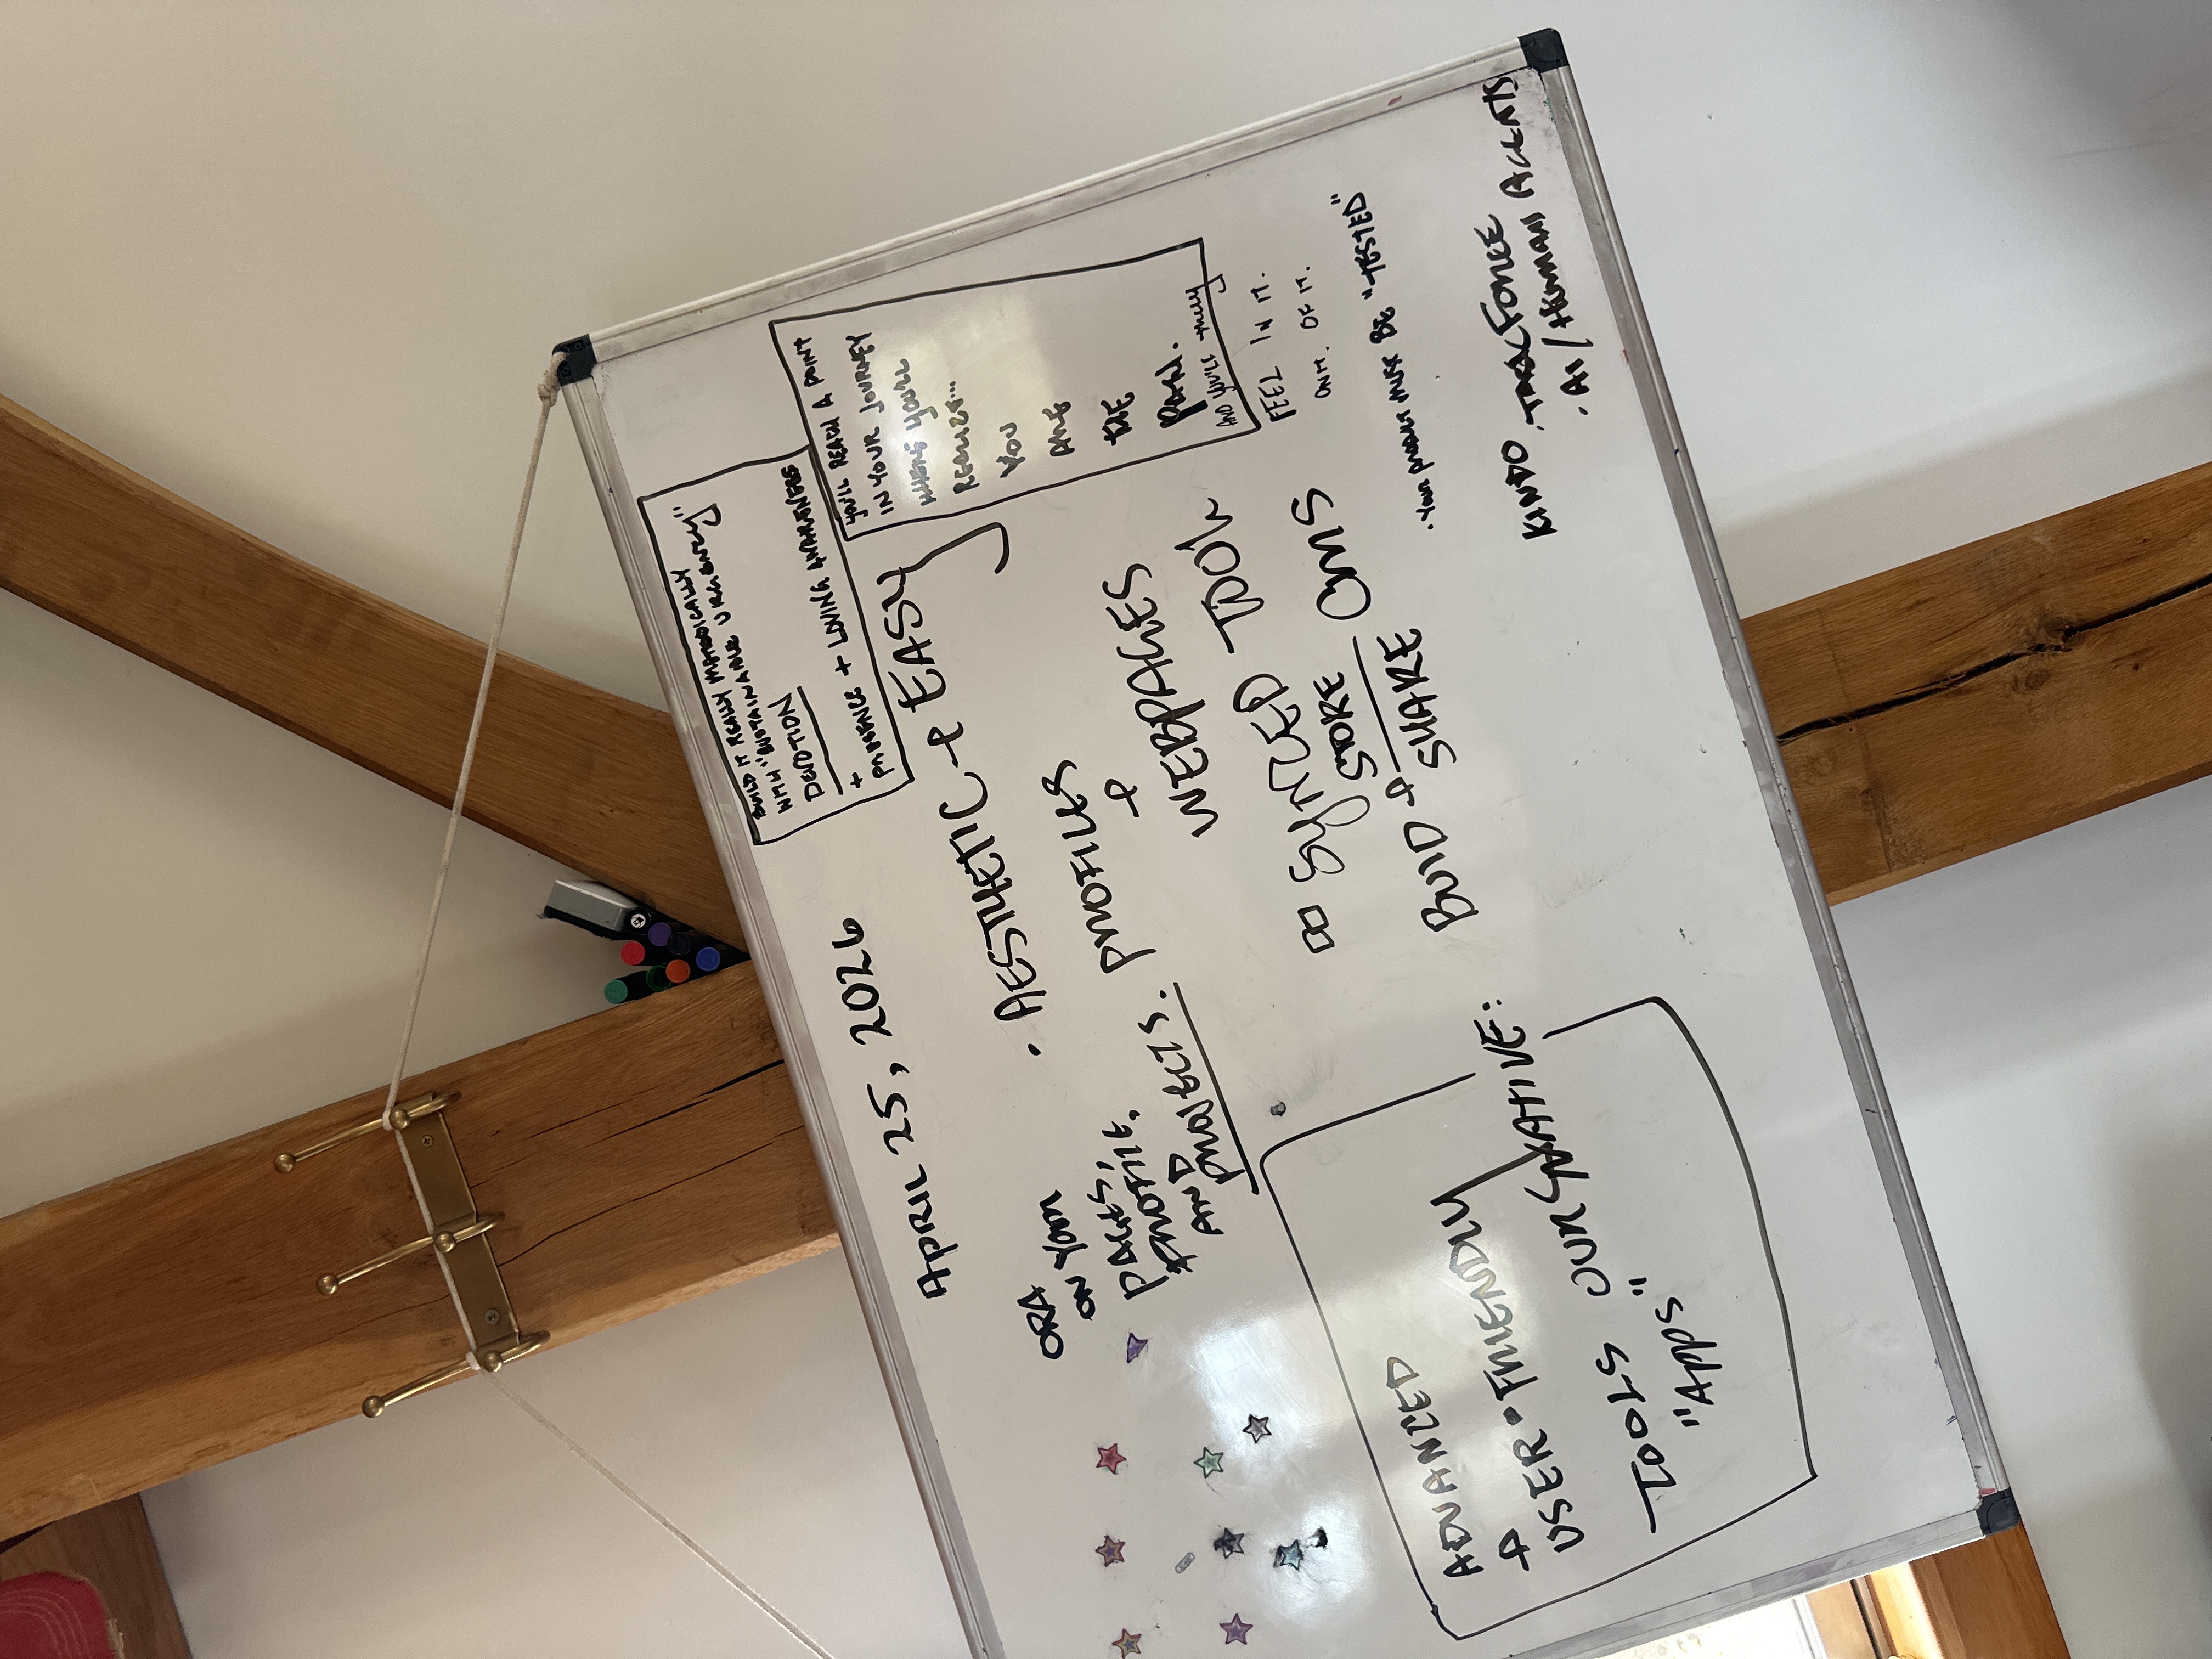 APRIL 25, 2026
BUILD IT REALLY METHODICALLY
WITH "SUSTAINABLE URGENCY"
DEVOTION
+
PRESENCE + LOVING AWARENESS
YOU'LL REACH A POINT
IN YOUR JOURNEY
WHERE YOU'LL
REALIZE...
YOU
ARE
THE
PATH.
AND YOU'LL truly
FEEL IN IT.
OF IT.
• AESTHETIC + EASY
ORA
ON YOUR
PAGES,
PROFILE.
AND
PROJECTS.
PROFILES
+
WEBPAGES
SYNCED TOOL
STORE
BUILD + SHARE OMS
• YOUR MUST BE "TESTED"
ADVANCED
+
USER • FRIENDLY
TOOLS OUR NATIVE:
"APPS"
KINTO
• AI / HUMAN AGENTS